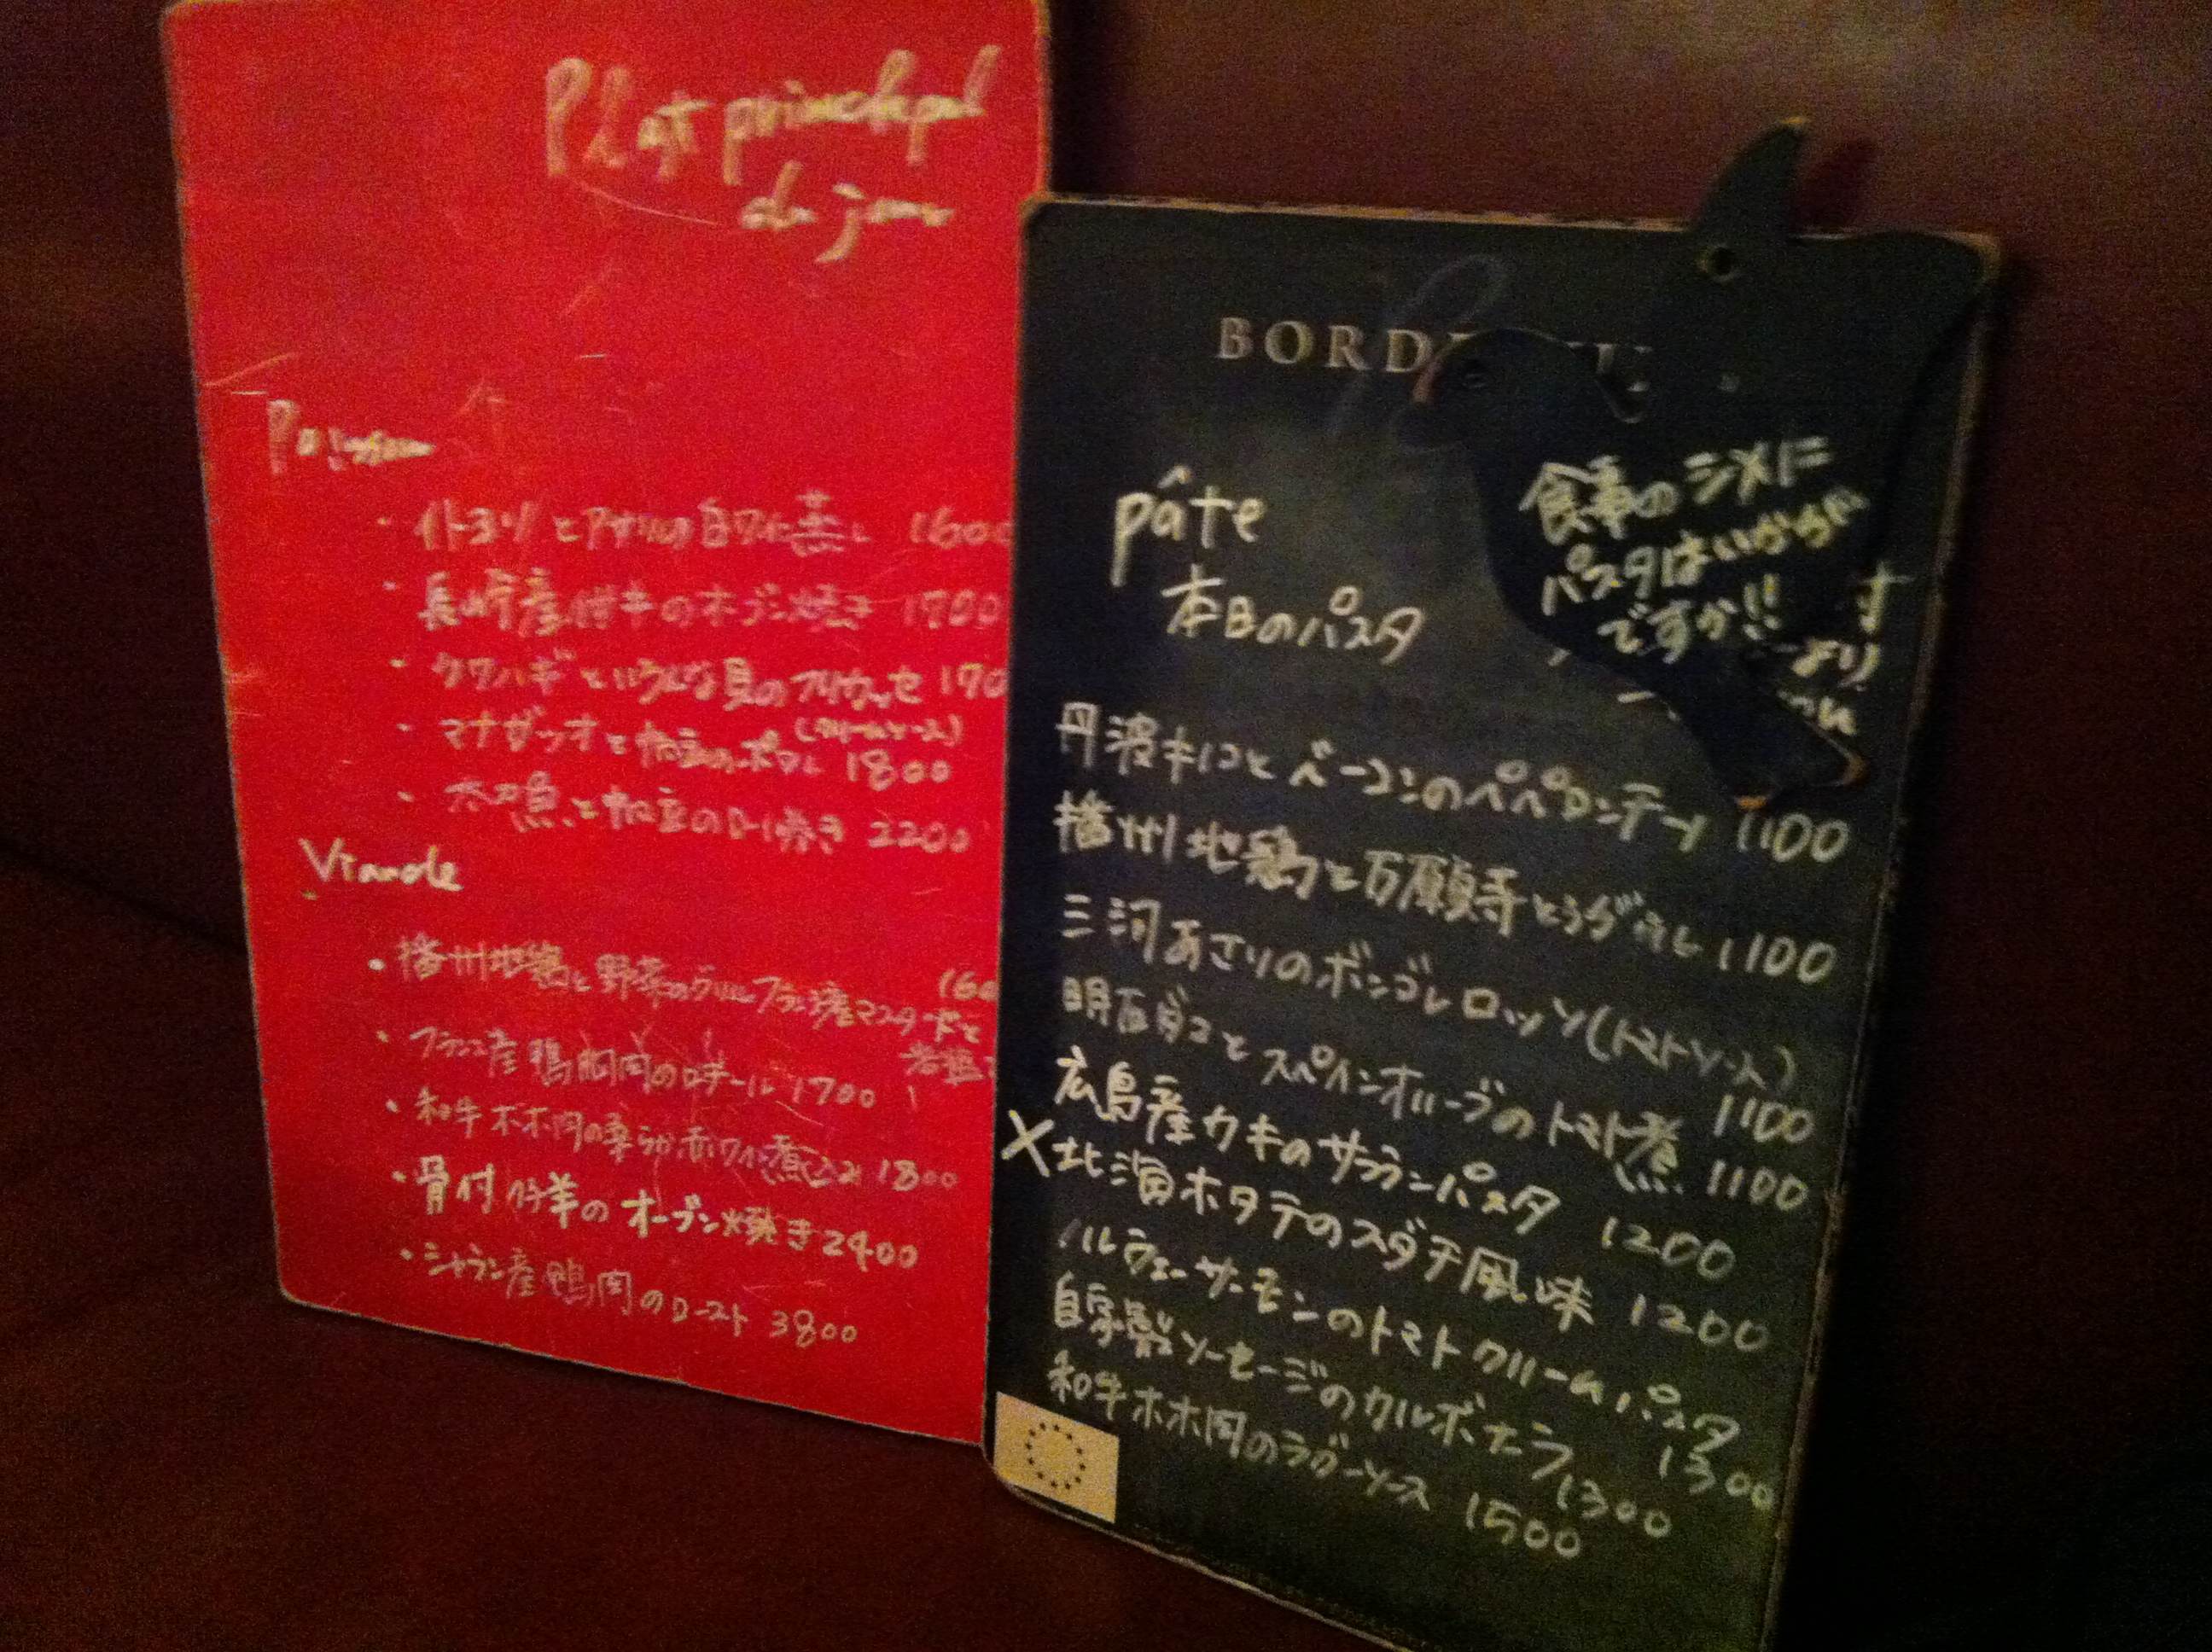 Plat principal
du jour
Poisson
・イトヨリとアサリの白ワイン蒸し 1600
・長崎産 の オーブン焼き 1700
・カワハギと 貝のフリカッセ 170
(クリームソース)
・マナガツオと帆立のポワレ 1800
・ と帆立の 焼き 2200
Viande
・播州地鶏と野菜のグリル フランス産マスタードと
160
岩塩で
・フランス産鴨胸肉のロティール 1700
・和牛ホホ肉の柔らか赤ワイン煮込み 1800
・骨付仔羊のオーブン焼き 2400
・シャラン産鴨肉のロースト 3800
BORDEAU
pâte
本日のパスタ
食事のシメに
パスタはいかが
ですか!!
す
より
丹波キノコとベーコンのペペロンチーノ 1100
播州地鶏と万願寺とうがらし 1100
三河あさりのボンゴレロッソ(トマトソース)
1100
明石ダコとスペインオリーブのトマト煮 1100
広島産カキのサフランパスタ 1200
×北海ホタテのスダチ風味 1200
ノルウェーサーモンのトマトクリームパスタ
1300
自家製ソーセージのカルボナーラ 1300
和牛ホホ肉のラグーソース 1500